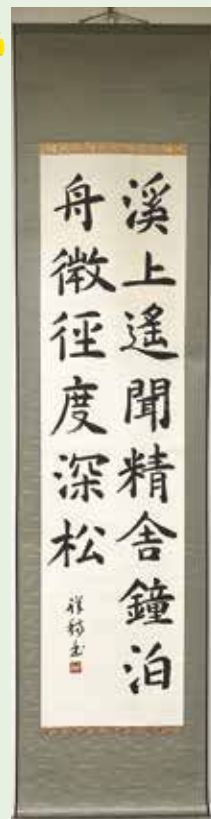 溪上遙聞精舎鐘泊
舟微徑度深松